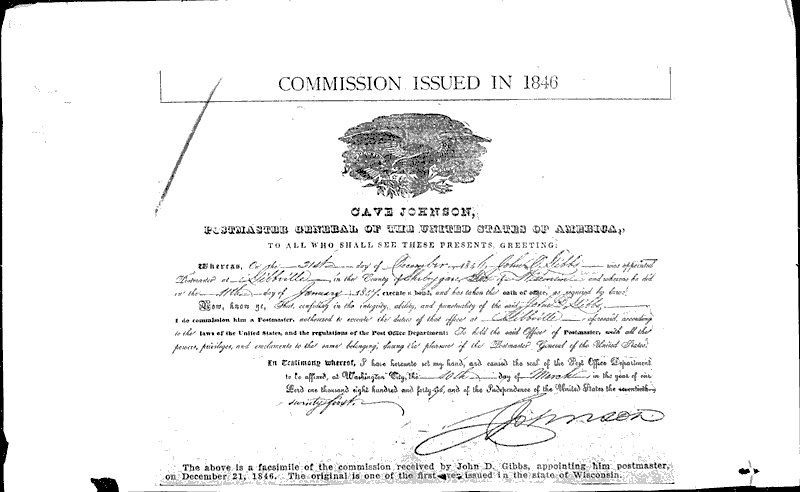 COMMISSION ISSUED IN 1846
CAVE JOHNSON,
POSTMASTER GENERAL OF THE UNITED STATES OF AMERICA,
TO ALL WHO SHALL SEE THESE PRESENTS, GREETING:
Whereas, On the 21st day of December 1846, John D. Gibbs was appointed
Postmaster at Gibbville in the County of Sheboygan, of Wisconsin and whereas he did
on the 11th day of January 1847 execute a bond, and has taken the oath of office, as required by law:
Now, know ye, That, confiding in the integrity, ability, and punctuality of the said John D. Gibbs
I do commission him a Postmaster, authorized to execute the duties of that office at Gibbville aforesaid, according
to the laws of the United States, and the regulations of the Post Office Department: To hold the said Office of Postmaster, with all the
powers, privileges, and emoluments to the same belonging, during the pleasure of the Postmaster General of the United States.
In Testimony whereof, I have hereunto set my hand, and caused the seal of the Post Office Department
to be affixed, at Washington City, the 10th day of March in the year of our
Lord one thousand eight hundred and forty and of the Independence of the United States the seventieth
seventy first.
C Johnson
The above is a facsimile of the commission received by John D. Gibbs, appointing him postmaster,
on December 21, 1846. The original is one of the first ever issued in the state of Wisconsin.